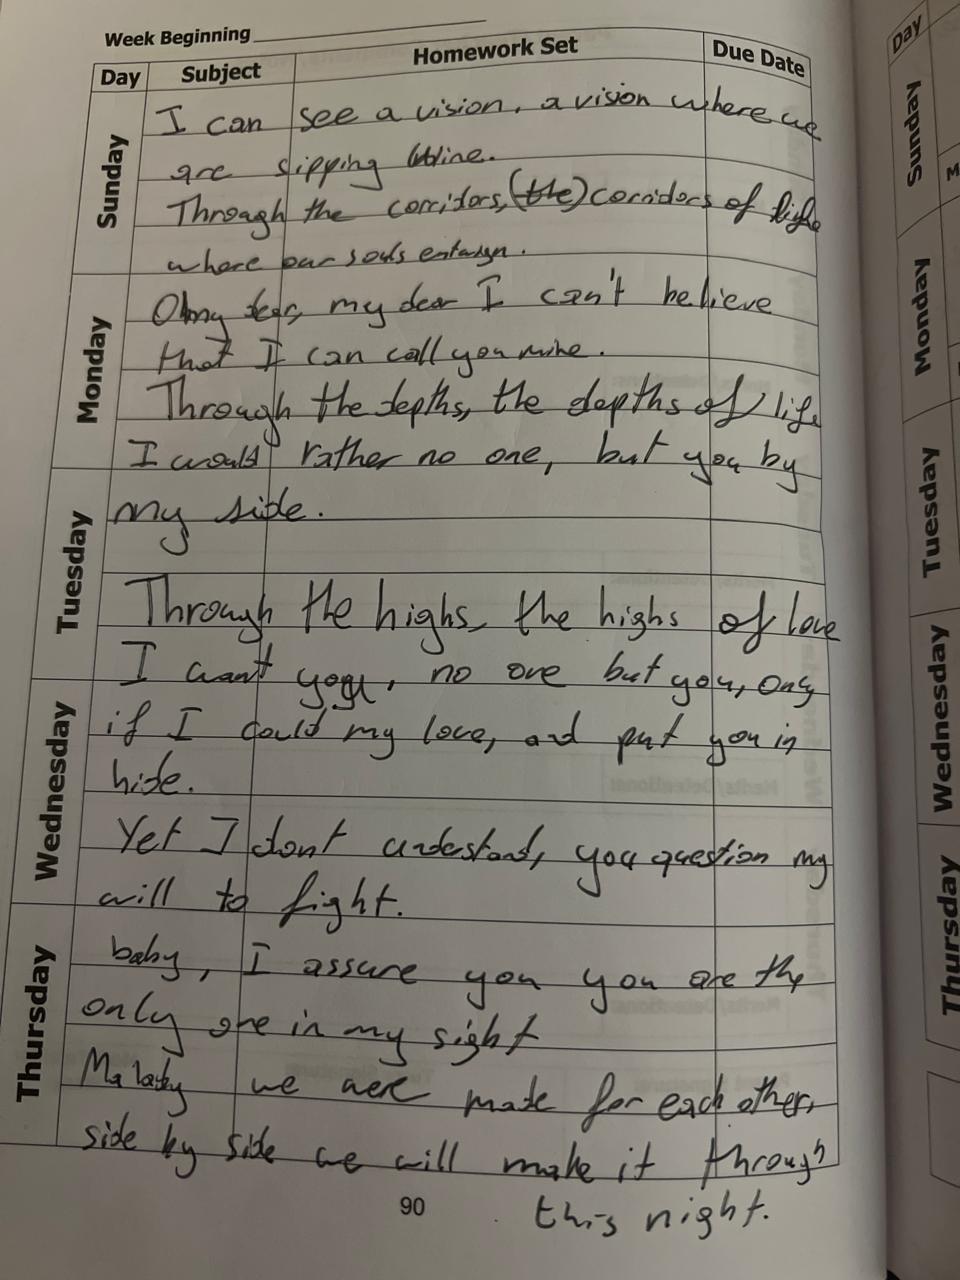 Week Beginning
Day Subject Homework Set Due Date
Sunday
I can see a vision, a vision where we
are sipping wine.
Through the corridors, (the) corridors of life
where our souls entwign.
Monday
Oh my dear, my dear I can't believe
that I can call you mine.
Through the depths, the depths of life
I would rather no one, but you by
Tuesday
my side.
Through the highs, the highs of love
I want you, no one but you, only
Wednesday
if I could my love, and put you in
hide.
Yet I dont understand, you question my
will to fight.
Thursday
baby, I assure you you are the
only one in my sight
Ma lady we were made for each other,
side by side we will make it through
this night.
90
Day
Sunday
M
Monday
Tuesday
Wednesday
Thursday